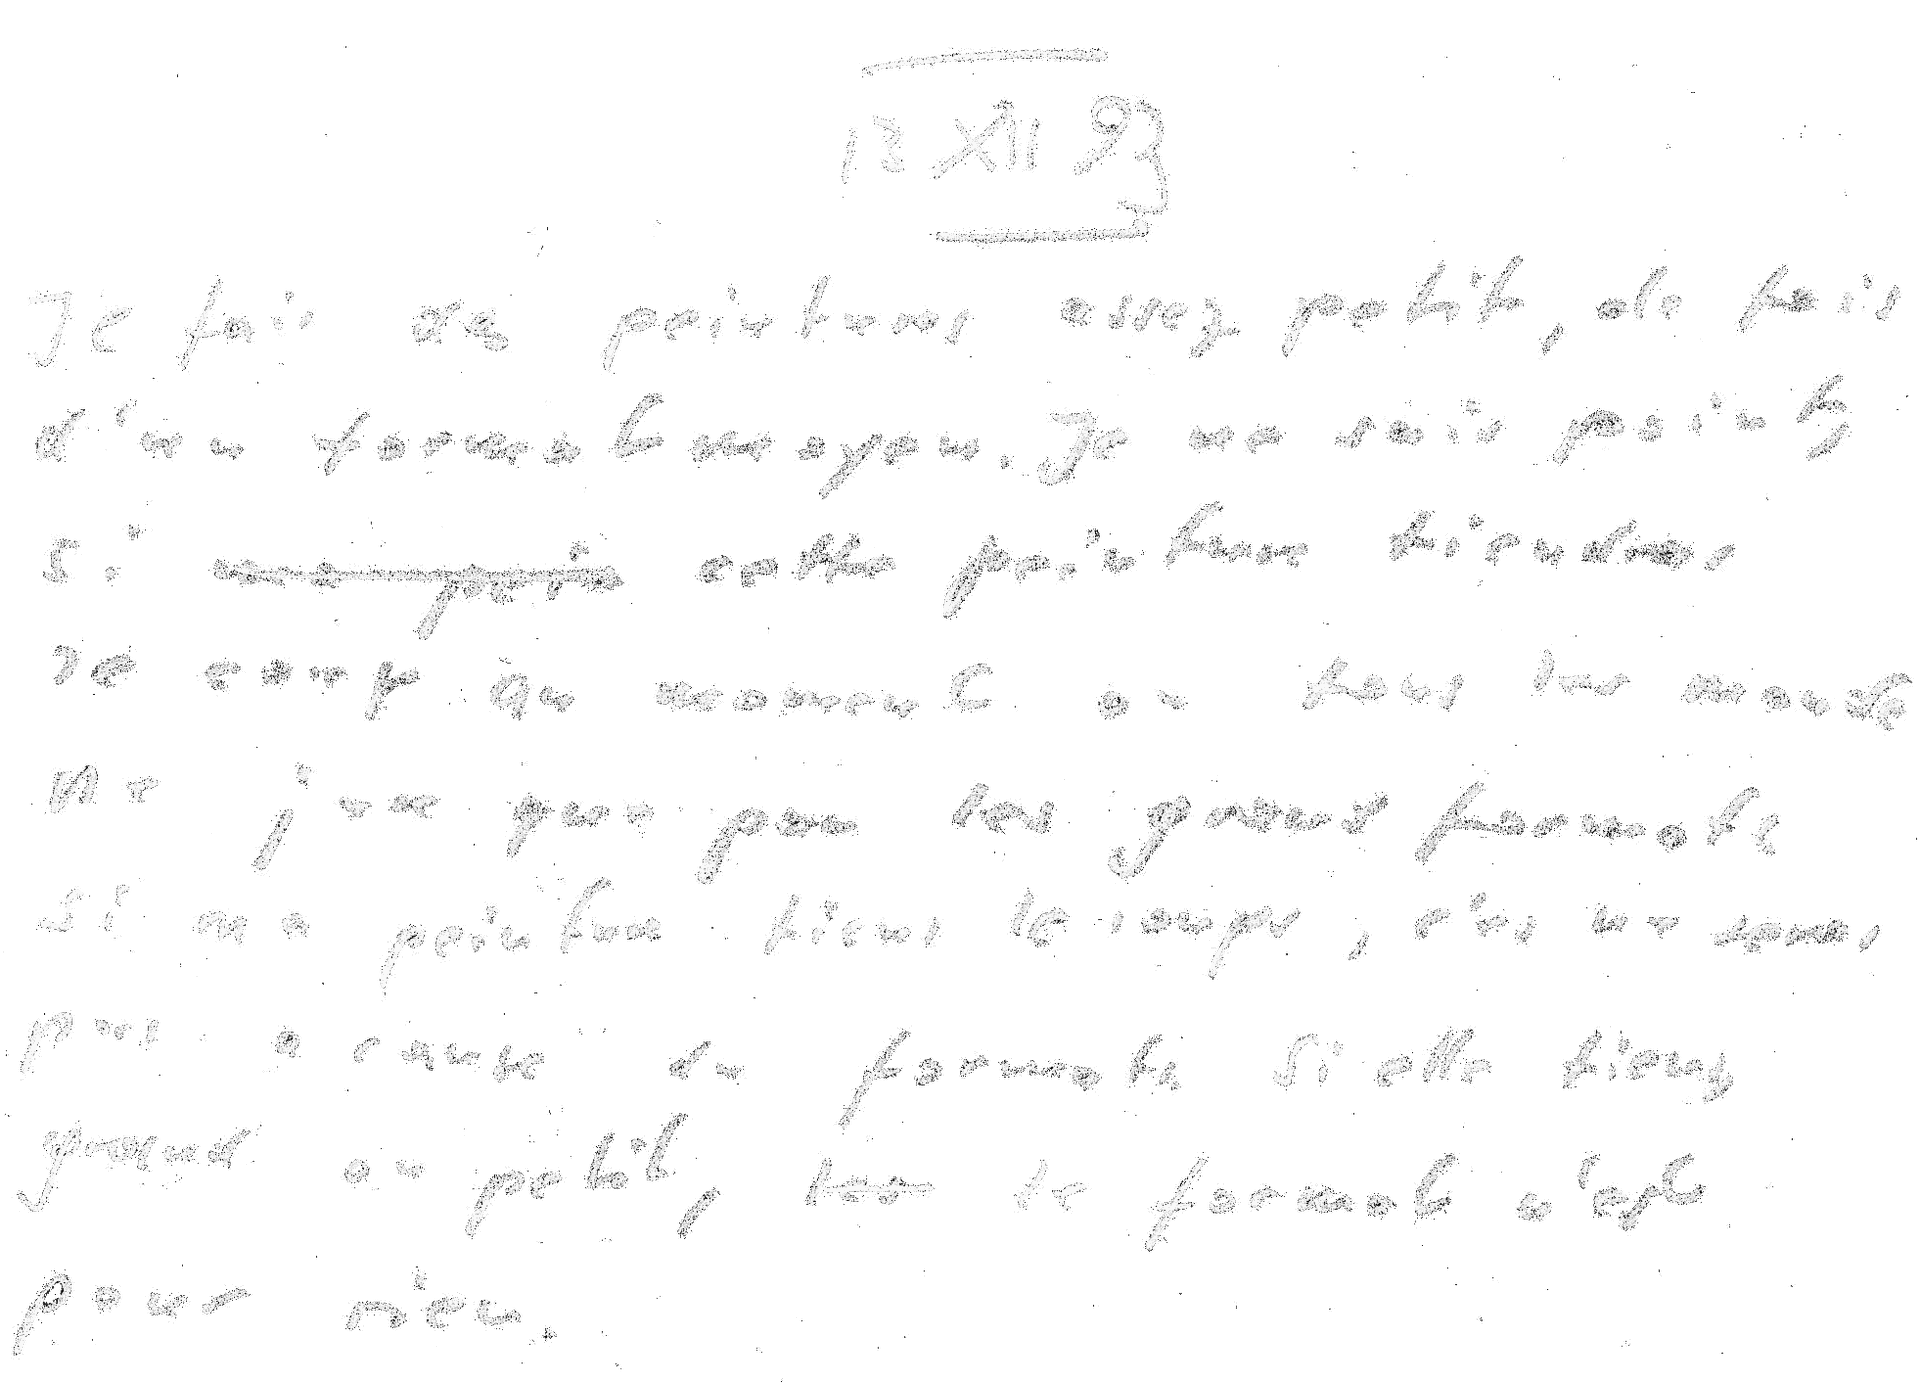 13 XII 93
Je fais des peintures assez petits, de fois
d'un format moyen. Je ne sais point,
si ne pein cette peinture tiendras
le coup. Au moment ou tous les monde
Ne jure que par les grands formats
Si ma peinture tiens le coups, c'est ne sera,
pas a cause du formats Si elle tiens,
grand ou petit, les le format n'est
pour rien.